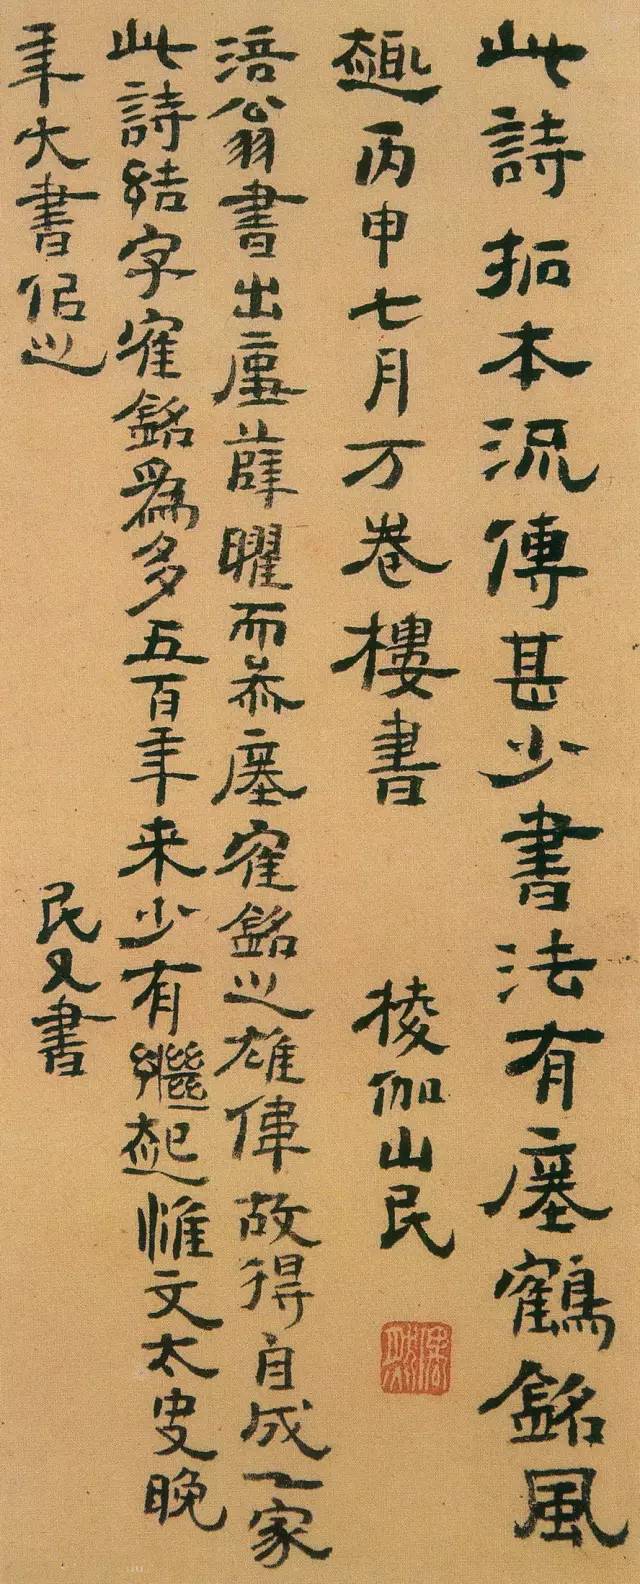 此詩拓本流傳甚少書法有瘞鶴銘風
趣丙申七月万卷樓書 楞伽山民
涪翁書出薛曜而叅瘞隺銘之雄偉故得自成一家
此詩結字隺銘爲多五百年来少有繼起惟文太史晚
年大書佀之 民又書